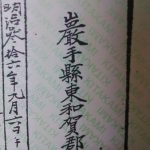 岩手縣東和賀郡
明治参拾六年九月六日